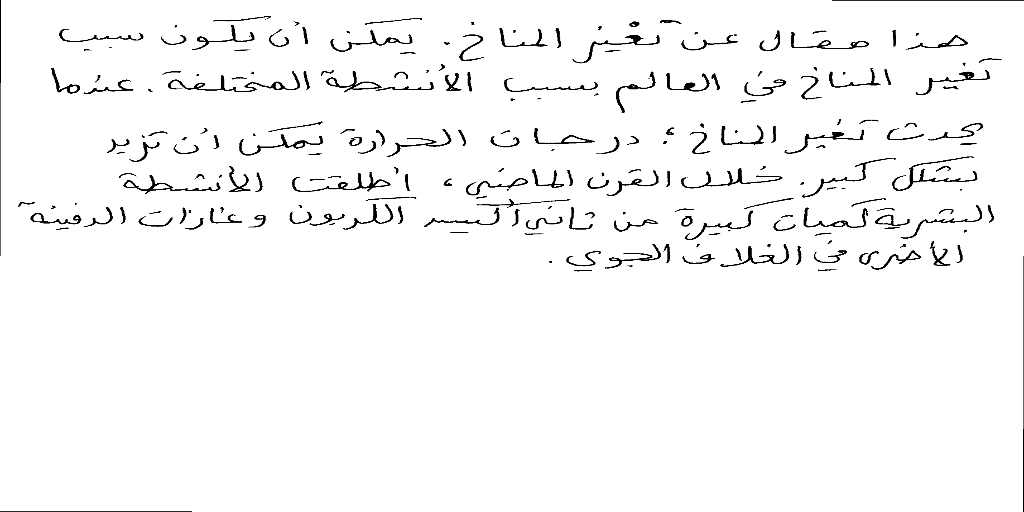 هذا مقال عن تغير المناخ. يمكن أن يكون سبب
تغير المناخ في العالم بسبب الأنشطة المختلفة. عندما
يحدث تغير المناخ؛ درجات الحرارة يمكن أن تزيد
بشكل كبير. خلال القرن الماضي، أطلقت الأنشطة
البشرية كميات كبيرة من ثاني أكسيد الكربون وغازات الدفيئة
الأخرى في الغلاف الجوي.